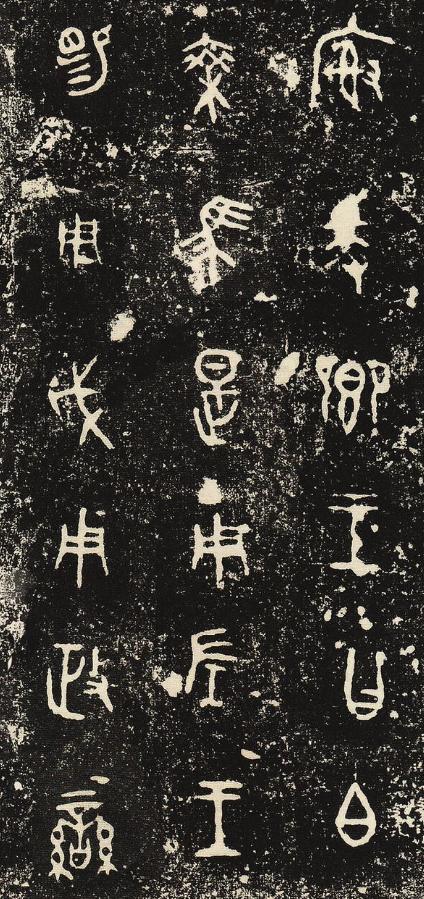 廟爰卿王曰白
乘馬是用左王
易用戉用政䜌